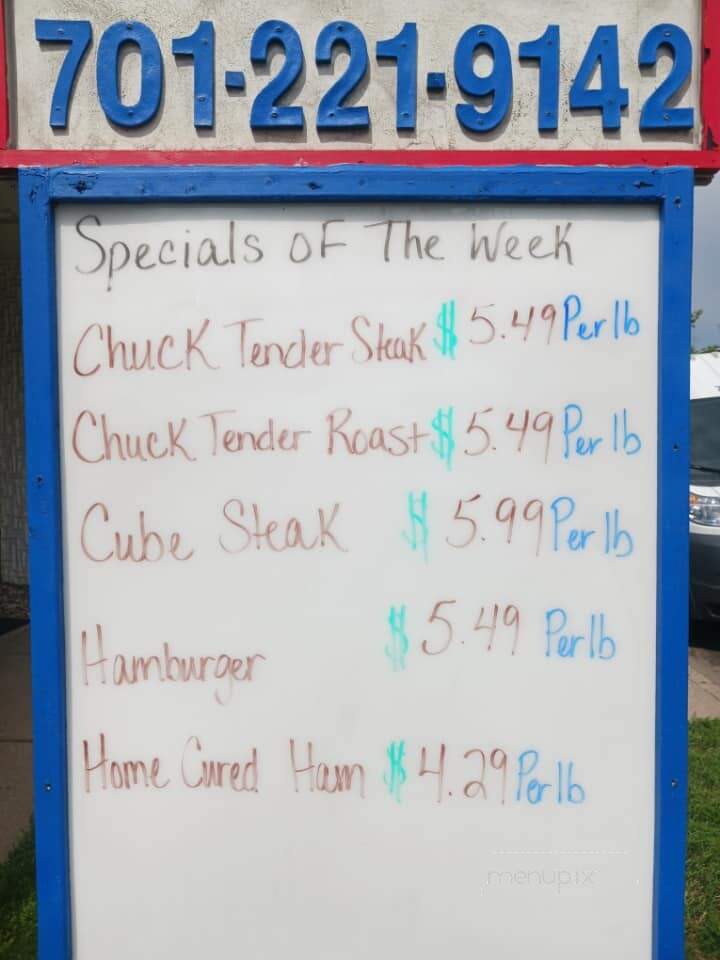 701-221-9142
Specials of The Week
Chuck Tender Steak $ 5.49 Per lb
Chuck Tender Roast $ 5.49 Per lb
Cube Steak $ 5.99 Per lb
Hamburger $ 5.49 Per lb
Home Cured Ham $ 4.29 Per lb
menupix